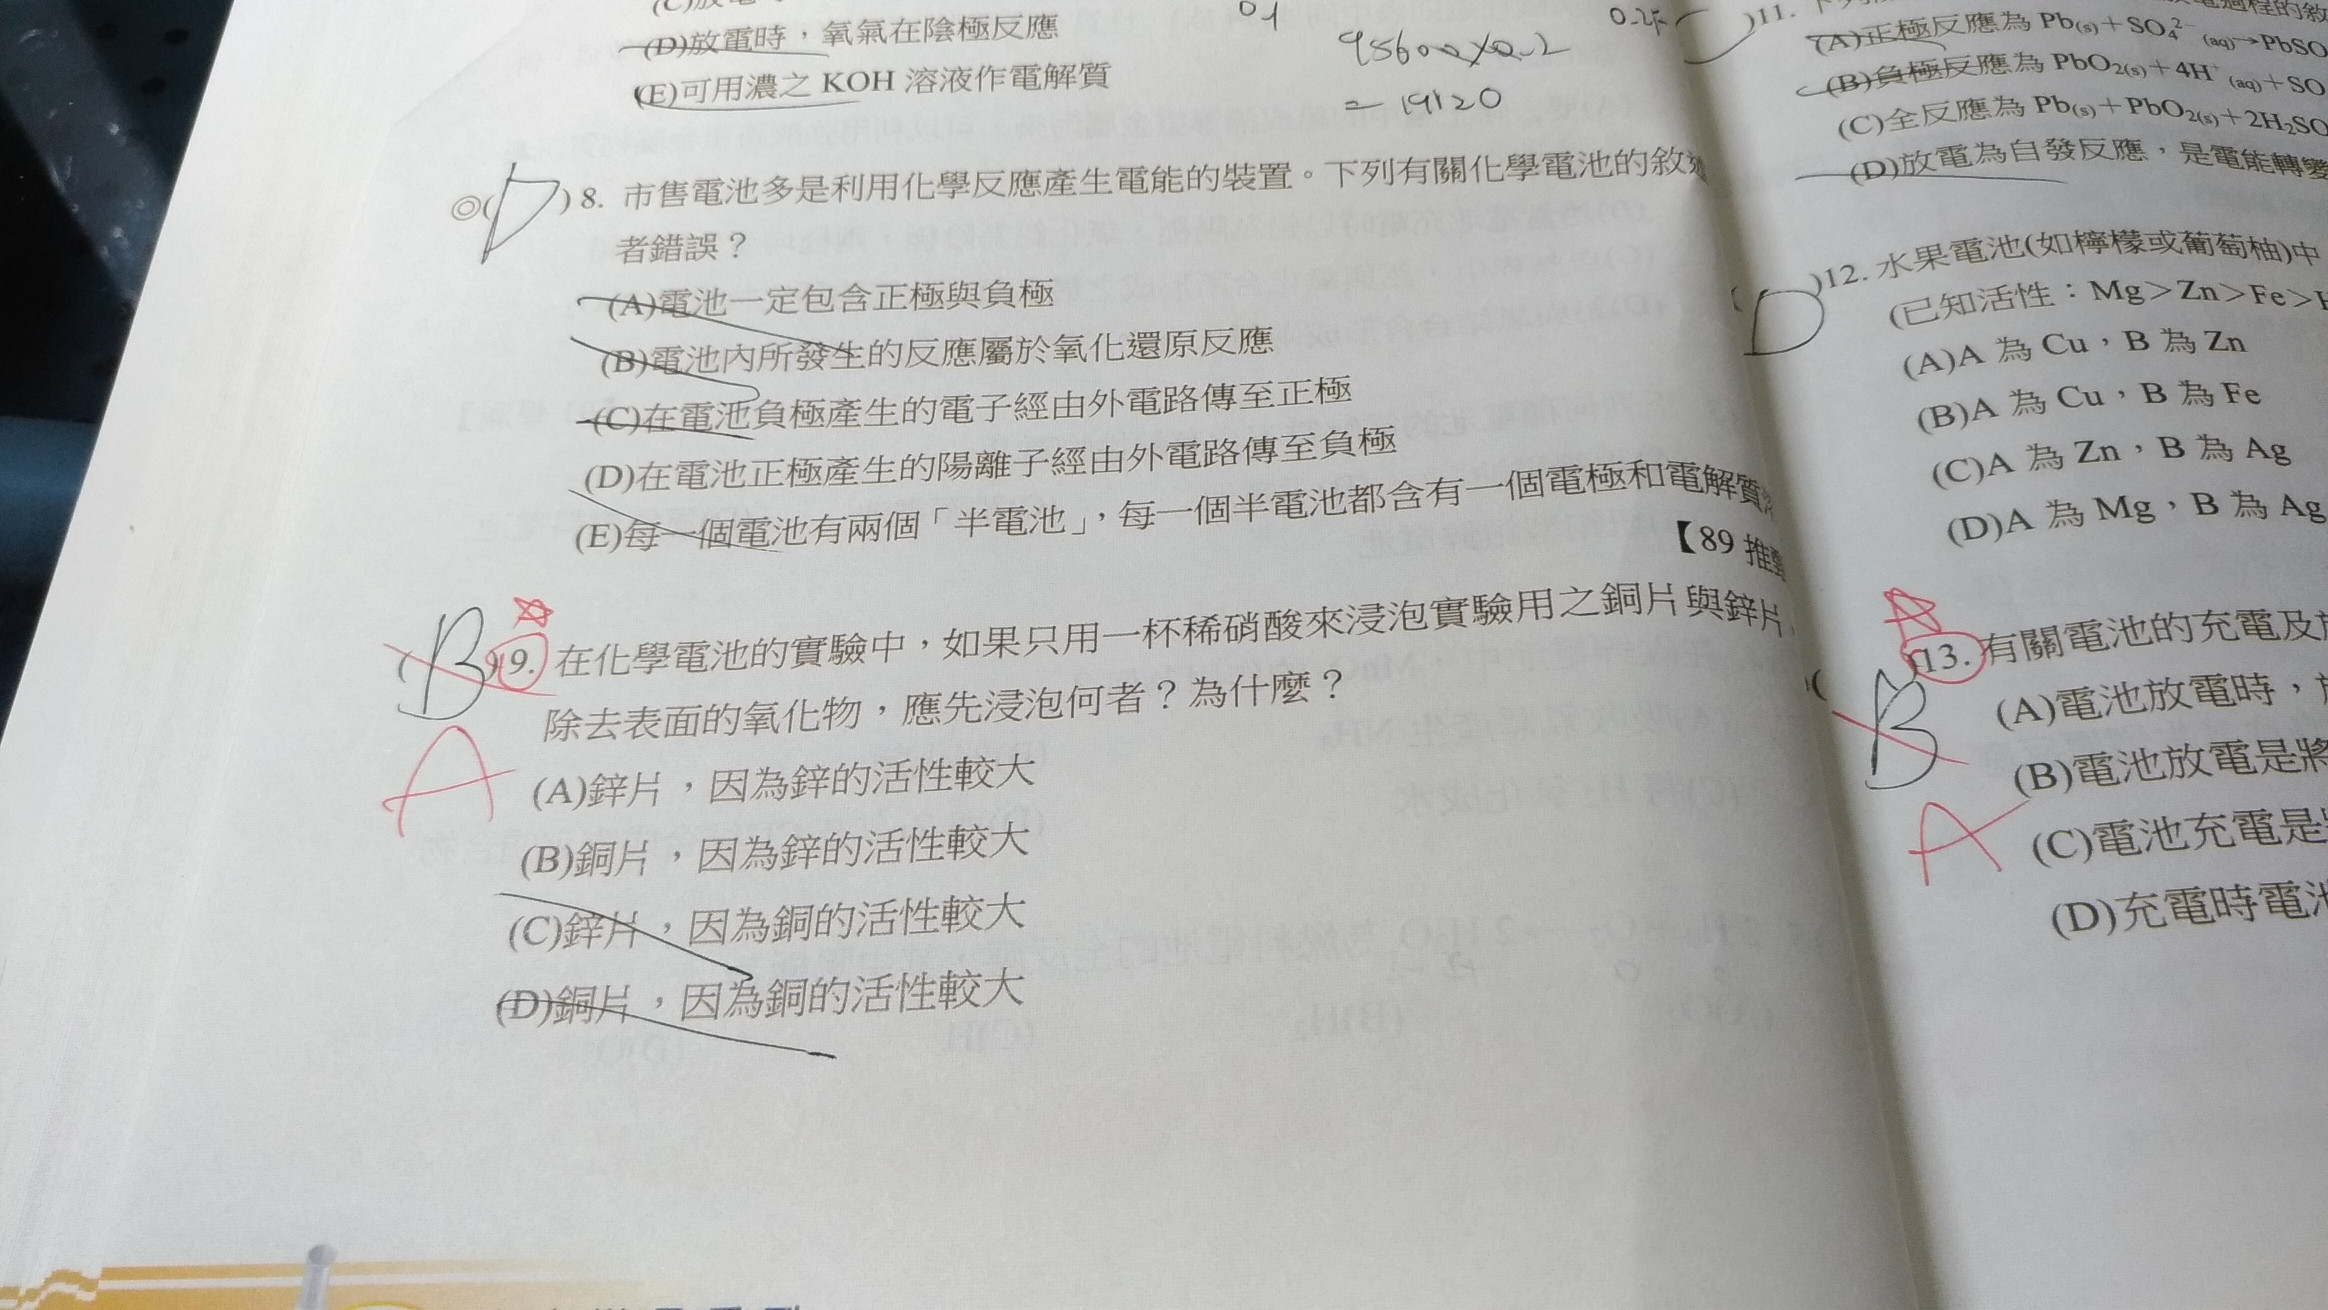 (D)放電時,氧氣在陰極反應
(E)可用濃之 KOH 溶液作電解質
0.1
95600×0.2
=19120
◎(D)8. 市售電池多是利用化學反應產生電能的裝置。下列有關化學電池的敘述
者錯誤?
(A)電池一定包含正極與負極
(B)電池內所發生的反應屬於氧化還原反應
(C)在電池負極產生的電子經由外電路傳至正極
(D)在電池正極產生的陽離子經由外電路傳至負極
(E)每一個電池有兩個「半電池」,每一個半電池都含有一個電極和電解質
【89 推甄
(B)9. 在化學電池的實驗中,如果只用一杯稀硝酸來浸泡實驗用之銅片與鋅片,
除去表面的氧化物,應先浸泡何者?為什麼?
A
(A)鋅片,因為鋅的活性較大
(B)銅片,因為鋅的活性較大
(C)鋅片,因為銅的活性較大
(D)銅片,因為銅的活性較大
)11.
(A)正極反應為 Pb(s)+SO₄²⁻(aq)→PbSO
(B)負極反應為 PbO₂(s)+4H⁺(aq)+SO
(C)全反應為 Pb(s)+PbO₂(s)+2H₂SO
(D)放電為自發反應,是電能轉變
(D)12. 水果電池(如檸檬或葡萄柚)中
(已知活性:Mg>Zn>Fe>
(A)A 為 Cu,B 為 Zn
(B)A 為 Cu,B 為 Fe
(C)A 為 Zn,B 為 Ag
(D)A 為 Mg,B 為 Ag
(B)13. 有關電池的充電及放
A
(A)電池放電時,
(B)電池放電是將
(C)電池充電是
(D)充電時電池